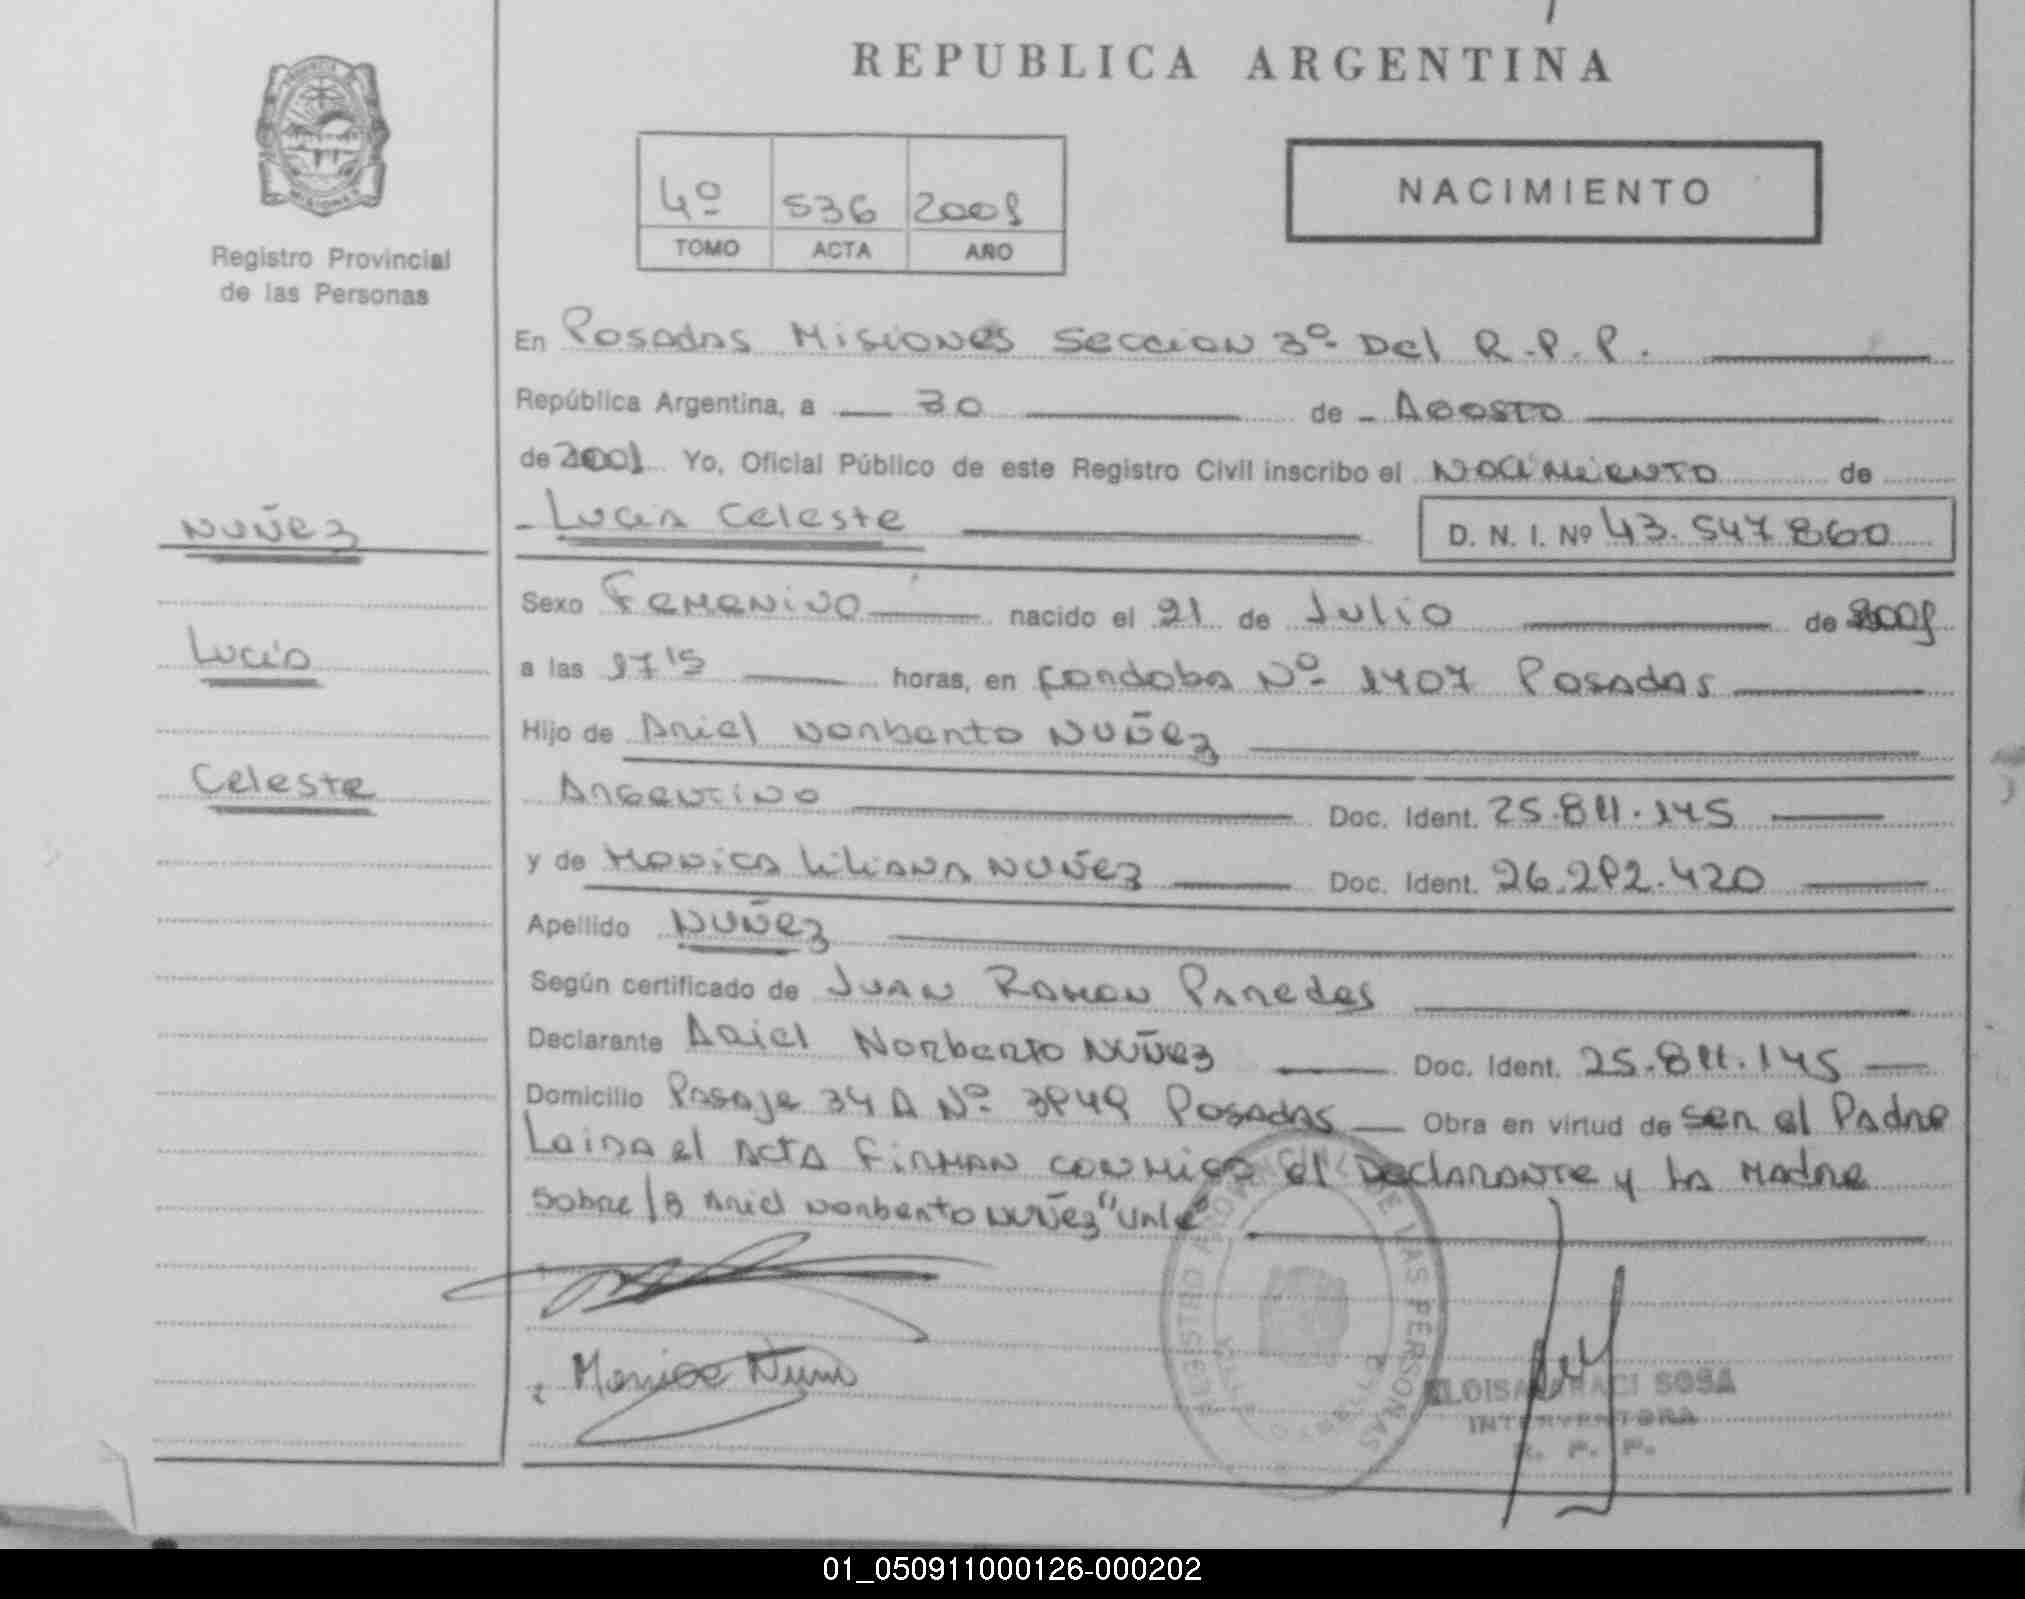 REPUBLICA ARGENTINA
Registro Provincial
de las Personas
4º 536 2001
TOMO ACTA AÑO
NACIMIENTO
En Posadas Misiones Seccion 3º Del R.P.P.
República Argentina, a 30 de Agosto
de 2001 Yo, Oficial Público de este Registro Civil inscribo el Nacimiento de
Nuñez
Lucia
Celeste
Lucia Celeste D. N. I. Nº 43.547.860
Sexo Femenino nacido el 21 de Julio de 2001
a las 17 15 horas, en Cordoba Nº 1407 Posadas
Hijo de Ariel Norberto Nuñez
Argentino Doc. Ident. 25.811.145
y de Monica Liliana Nuñez Doc. Ident. 26.292.420
Apellido Nuñez
Según certificado de Juan Ramon Paredes
Declarante Ariel Norberto Nuñez Doc. Ident. 25.811.145
Domicilio Pasaje 34 A Nº 3949 Posadas Obra en virtud de ser el Padre
Leida el Acta Firman conmigo el Declarante y la Madre
Sobre/B Ariel Norberto Nuñez "Vale"
REGISTRO PROVINCIAL DE LAS PERSONAS
Monica
SOSA
INTERVENTORA
R. P. P.
01_050911000126-000202